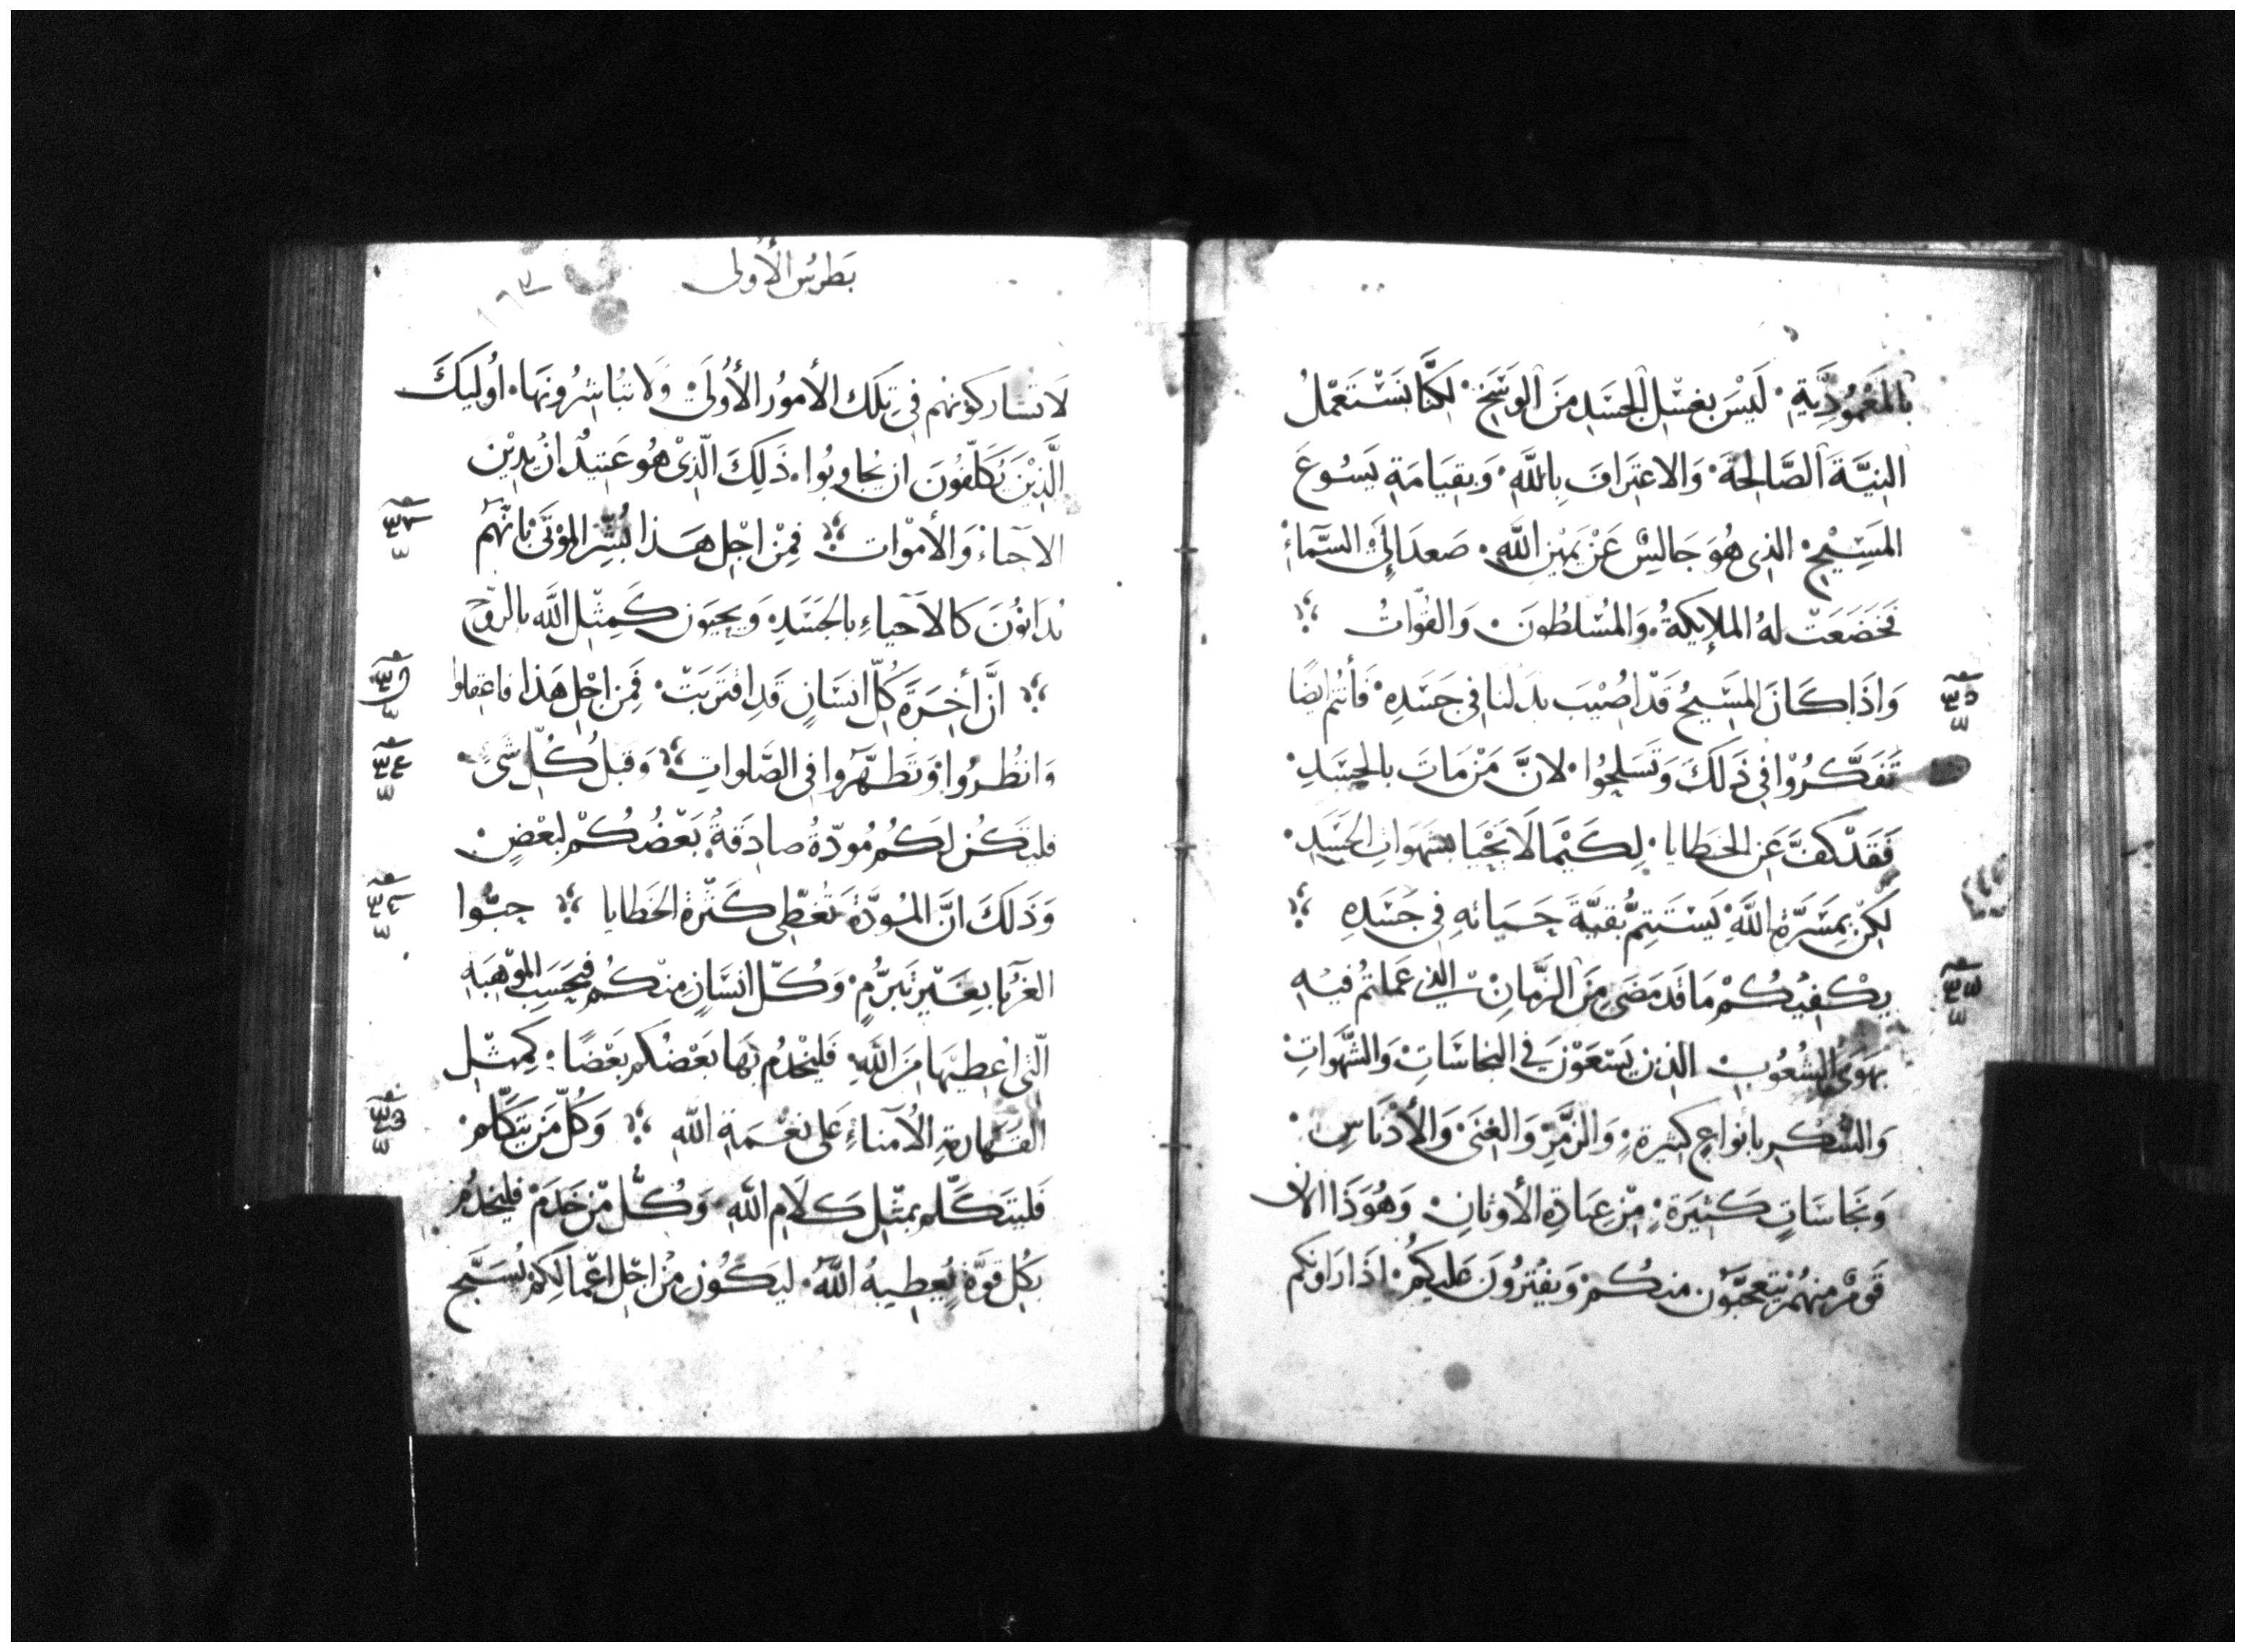 بِالمَعْمُودِيَّةِ. لَيْسَ بغسْلِ الجسَدِ مِنَ الوَسَخِ. لكنَّا نَسْتَعْمِلُ
النِيَّةَ الصَّالحَةَ. وَالاعتِرَافَ بِاللَّهِ. وَبقيَامَةِ يَسُوعَ
المَسِيْحِ. الذى هُوَ جَالِسْ عَنْ يَمِيْنِ اللَّهِ. صَعدَ إِلَى السَّمَاءِ
فَخَضَعَتْ لهُ الملايكةُ. وَالمُسْلطُونَ. وَالقوّاتُ
وَاذَا كَانَ المَسِيحُ قَدْ اصُيْبَ بدَلنا فى جَسَدِهِ. فَأنتُم ايضًا
تَفَكَّرُوْا فى ذَلكَ وَتَسَلحُوا. لانَّ مَنْ مَاتَ بالجسَدِ.
فَقَدْ كفَّ عَنِ الخطايا. لِكَيْمَا لَا يَحْيَا بشهَوَاتِ الجسَدِ.
لكِنْ بمَسَرَّةِ اللَّهِ يَسْتَتِمُّ بقيَّةَ حَيَاتهِ فى جَسَدِهِ
يكْفِيْكُمْ مَا قَد مَضَى مِنَ الزَّمَانِ الذى عَملتمُ فيْهِ
بهَوَى الشُعُوبِ الذين يَسْعَوْنَ فى النجاسَاتِ وَالشَّهَواتِ
وَالسُّكْرِ بأنواعٍ كثيرةٍ. وَالزَّمْرِ وَالغِنَى. وَالأدْنَاسِ.
وَنَجاسَاتٍ كَثيرَةٍ. مِنْ عِبَادَةِ الأوثانِ. وَهُوَذَا الان
قَومْ منهُمْ يتَعجَّبُون منكُمْ. وَيفْترُونَ عَليكُمْ. اذَا رَاوكم
بَطرسُ الأولى
لَا تشاركونهم فى تِلكَ الأمورُ الأُولَى. وَلا تبُاشِرُونهَا. اوُليكَ
الَّذِيْنَ يُكَلّفُونَ ان يُجاوبُوا. ذَلِكَ الّذِىْ هُو عَتيدٌ انْ يَدِيْن
الاحياءَ وَالأمْوات فمِنْ اجْلِ هَذا بُشِّر الموْتَى بانّهُم
يُدَانوُنَ كالاَحياءِ بالجَسَدِ وَيحيَون كَمِثْلِ اللَّه بالروُّحِ
انَّ أخِرَةَ كُلِّ انسَانٍ قَدِ اقترَبَتْ. فَمِن اجْلِ هَذا فاعقِلوا
وَانظُروا وَتَطهَّروا فى الصَّلواتِ وَقبْلَ كُلِّ شىٍ.
فلتَكُن لَكُم مُودّةُ صادِقَةُ. بَعْضُكُمْ لبَعْضٍ.
وَذَلكَ انَّ المُوَدَّةَ تُغَطّى كَثْرَة الخَطايا حِبُّوا
الغرَبَا بِغَيْرِ تَبَرُّمٍ. وَكُلّ انسَانٍ منْكُم فبحَسَبِ الموْهِبَةِ
الّتى اعْطِيَهَا مِنَ اللَّهِ فَليَخْدُم بَهَا بَعْضُكم بَعْضًا: كمِثْلِ
القَهَارمةِ الاُمنَاءِ عَلى نعْمَةِ اللهِ وَكُلّ مَن يَتَكَّلم.
فَليَتَكَلّم بمثلِ كَلَام اللَّهِ وَكُلُّ مَنْ خَدَمْ فليَخْدُمْ
بكُلِ قوَّةٍ يُعِطيهُ اللَّهُ. ليَكُون مِنْ اجْلِ اعْمَالكم يُسَبَّح